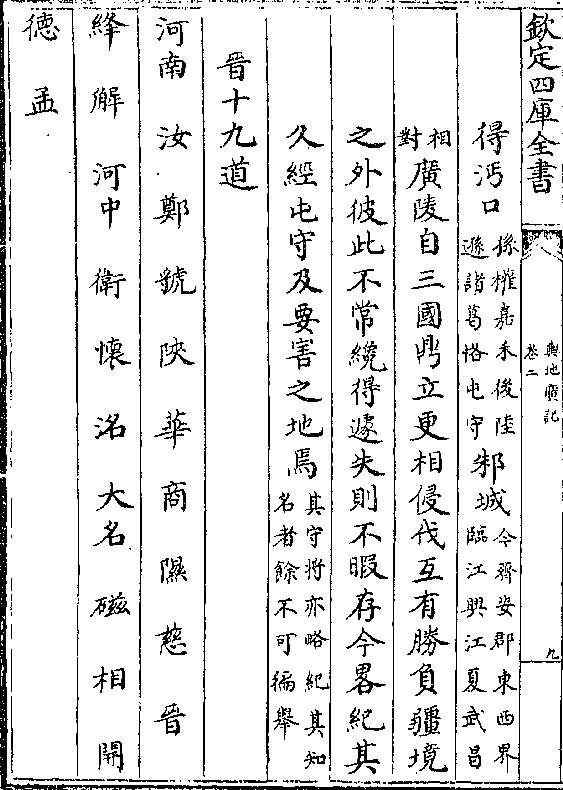 欽定四庫全書
輿地廣記
卷二
九
得沔口
孫權嘉禾後陸
遜諸葛恪屯守
邾城
今齊安郡東西界
臨江與江夏武昌
相
對
廣陵自三國鼎立更相侵伐互有勝負疆境
之外彼此不常纔得遽失則不暇存今畧紀其
久經屯守及要害之地焉
其守將亦略紀其知
名者餘不可徧舉
晉十九道
河南 汝 鄭 虢 陝 華 商 隰 慈 晉
絳 解 河中 衛 懷 洺 大名 磁 相 開
德 孟